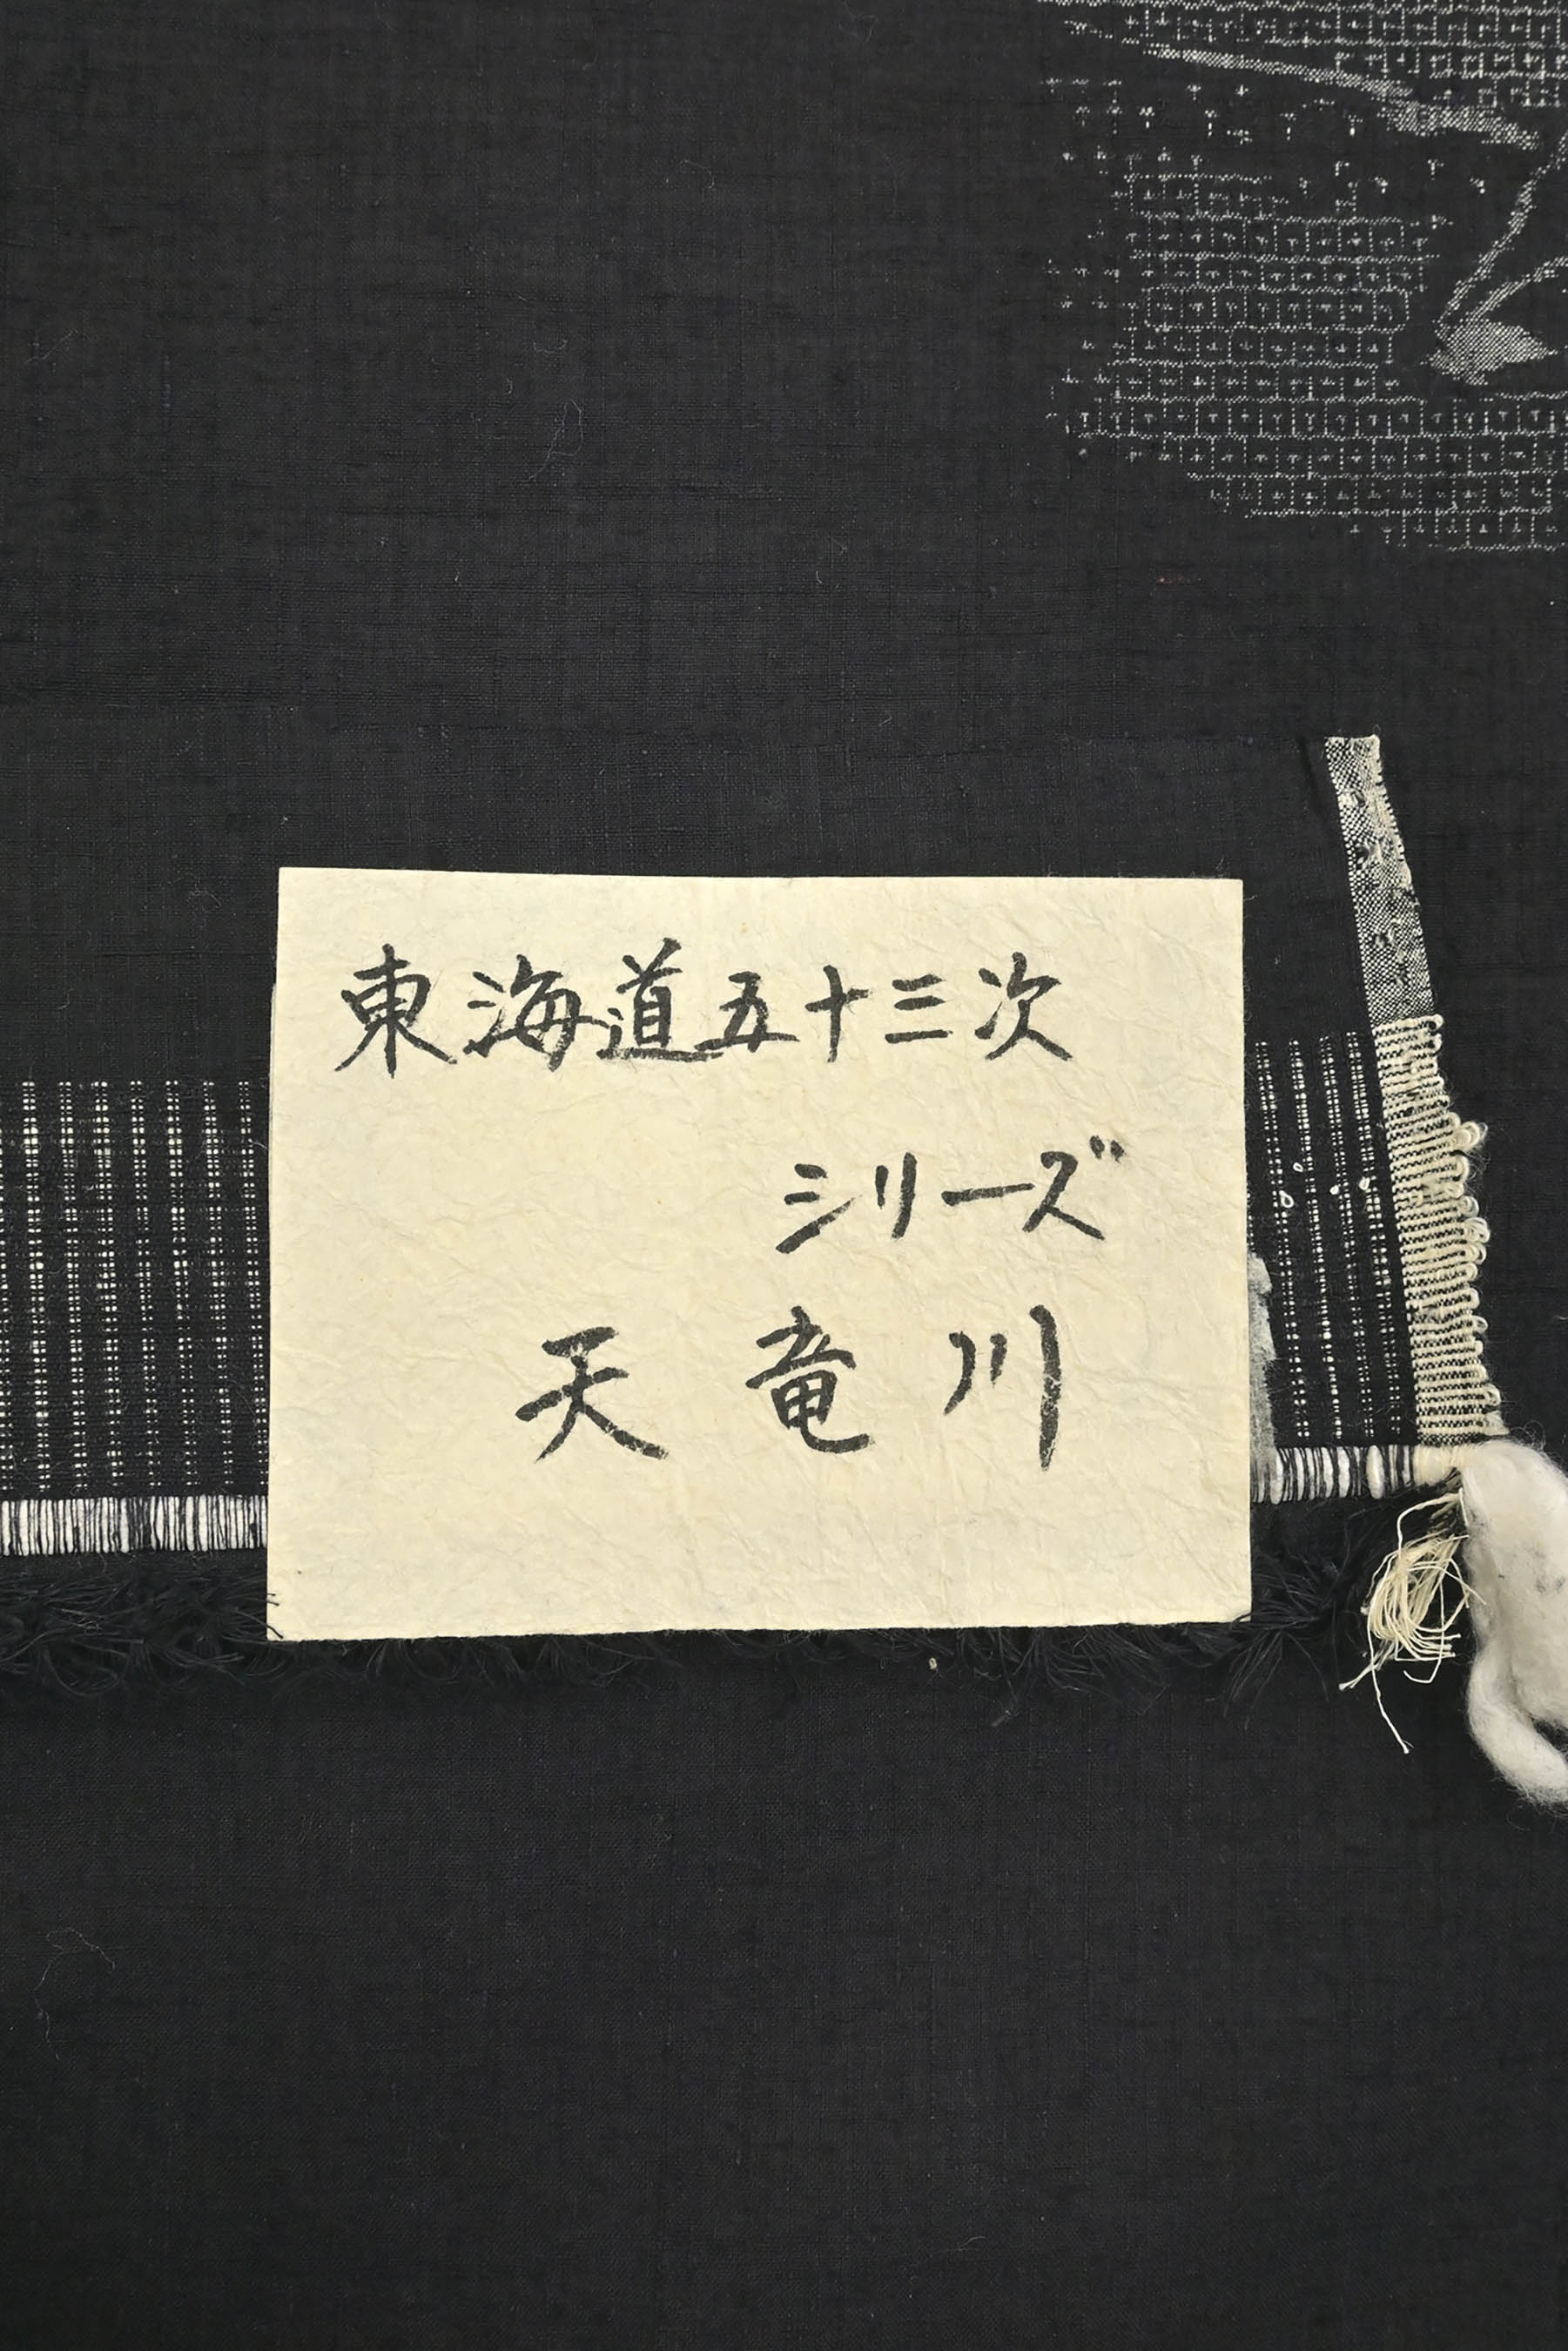 東海道五十三次
シリーズ
天竜川